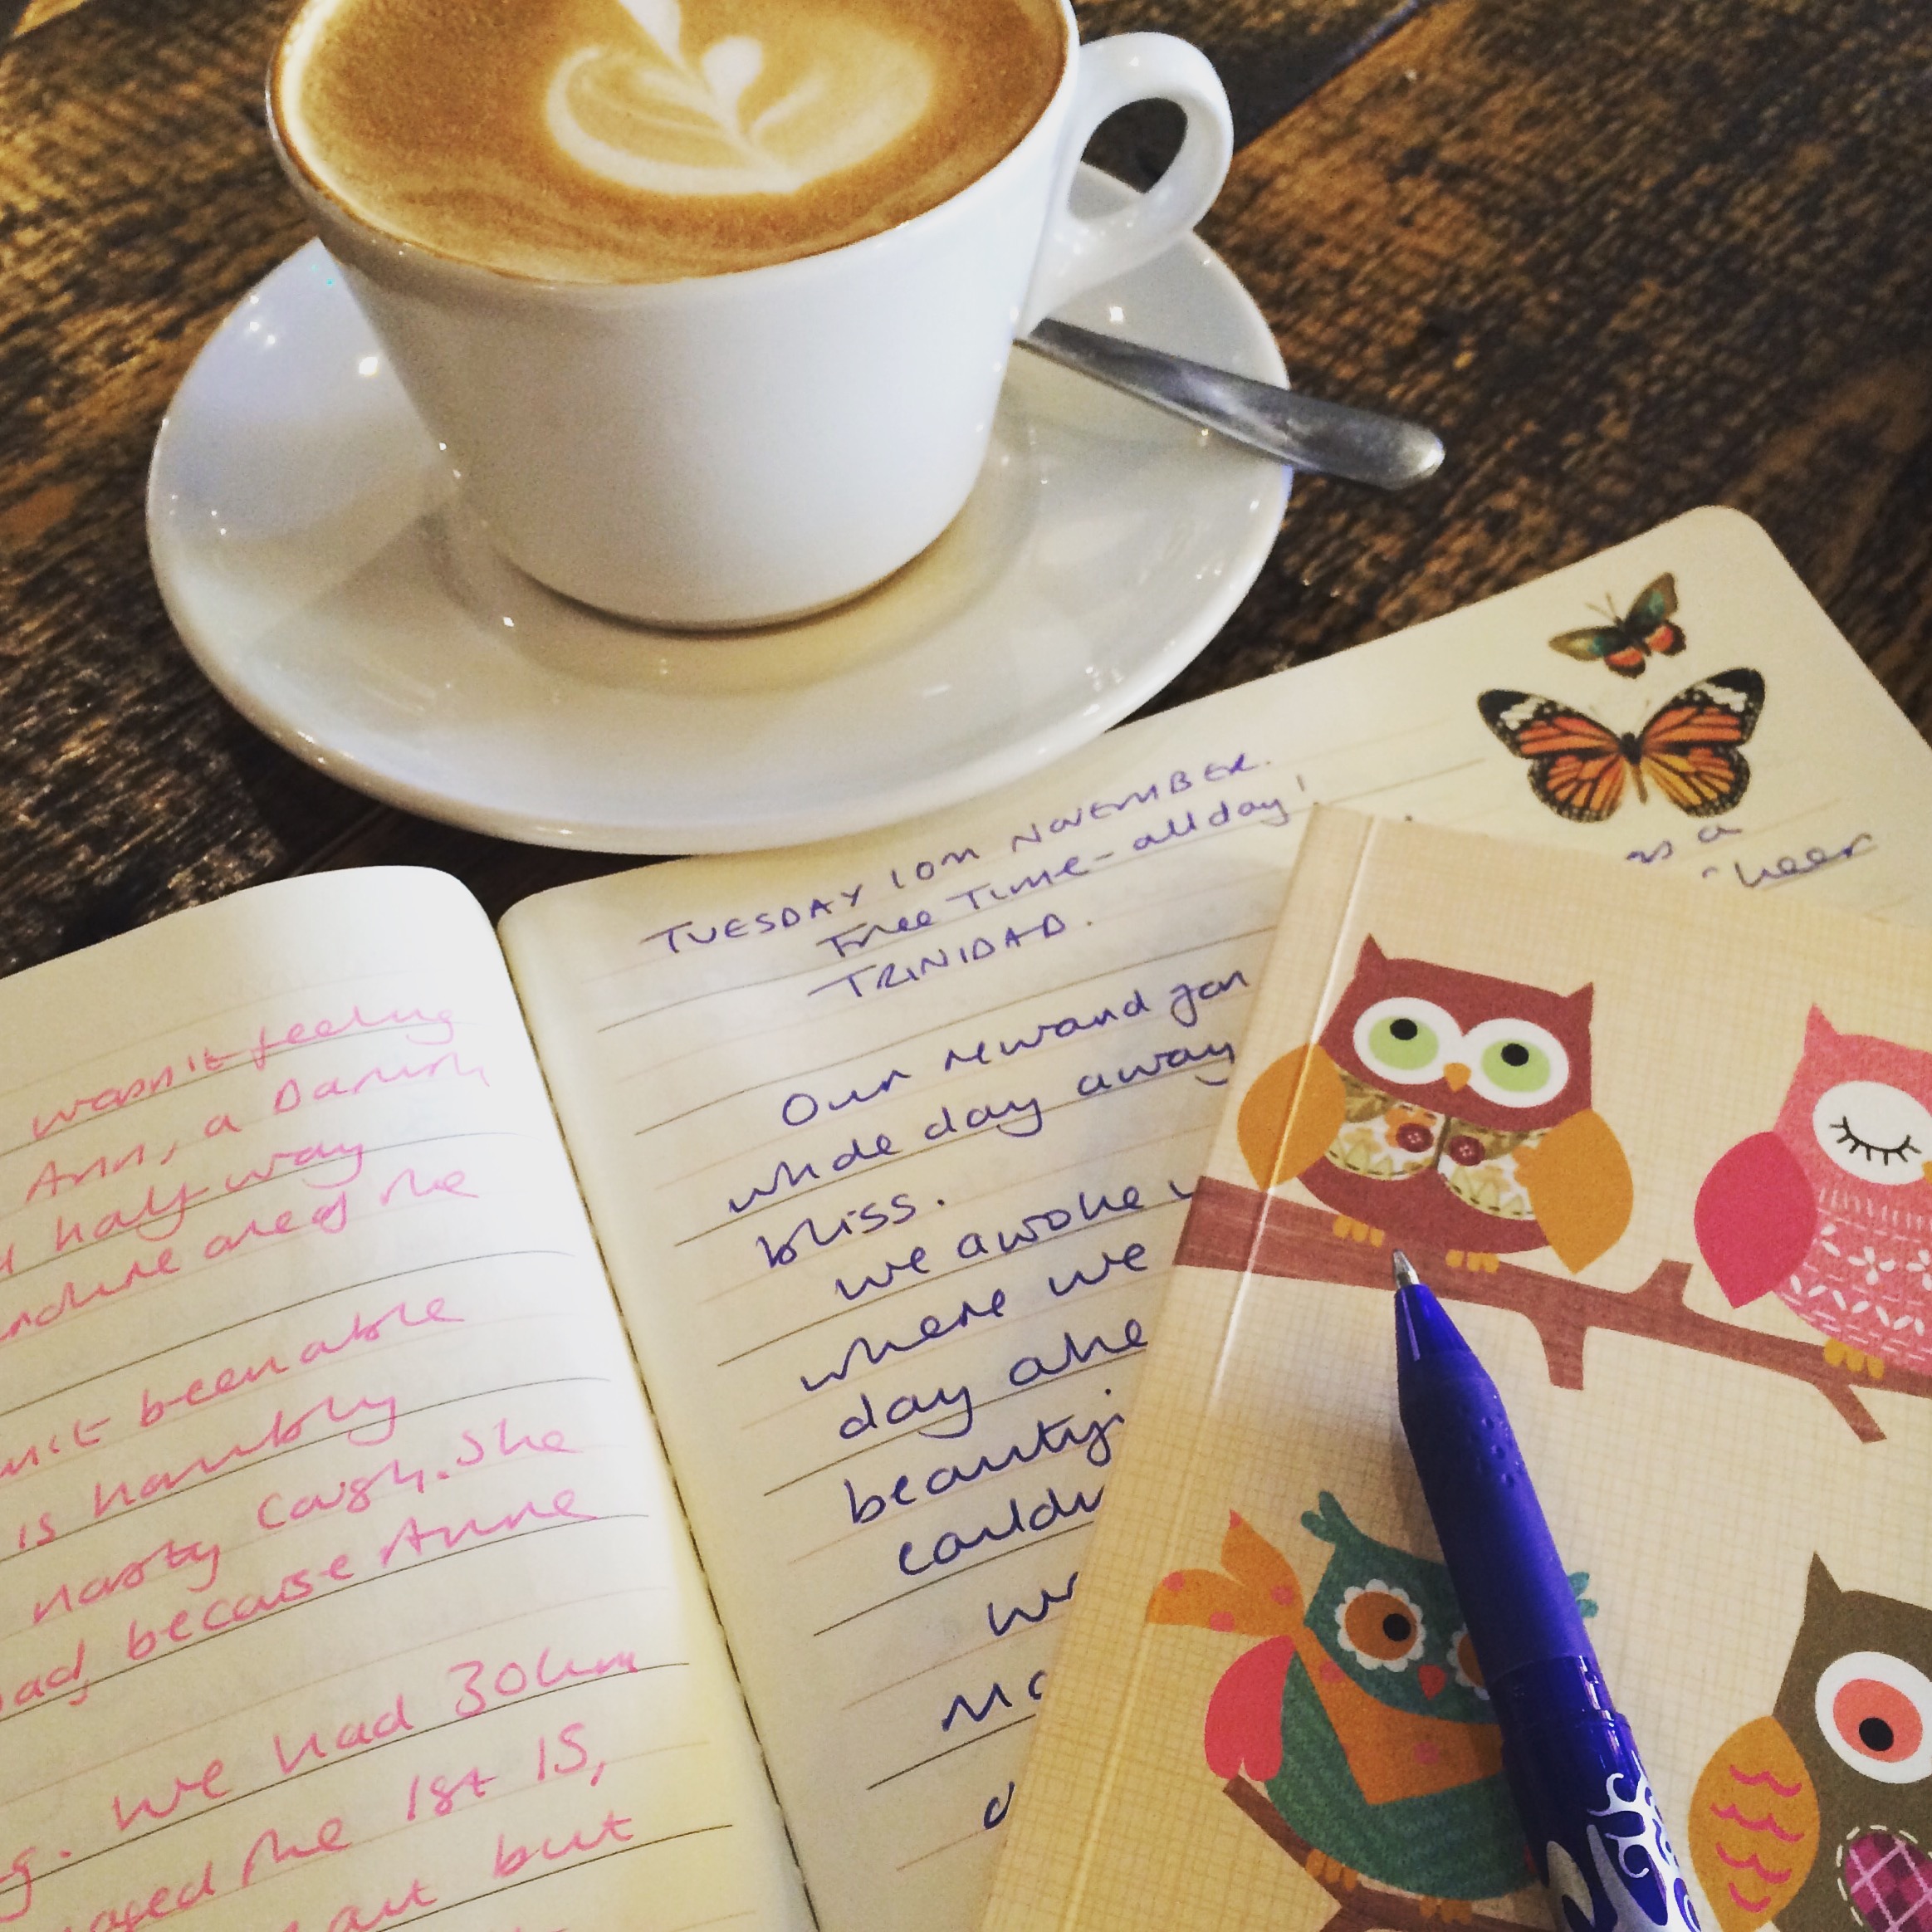 wasn't feeling
Ann, a Danish
half way
area of the
been able
is horribly
nasty cough. She
because Anne
we had 30km
the 1st 15,
but
TUESDAY 10TH NOVEMBER.
Free Time - all day!
TRINIDAD.
Our reward for
whole day away
bliss.
we awoke
where we
day ahe
beautifi
couldn
wr
Mo
d
as a